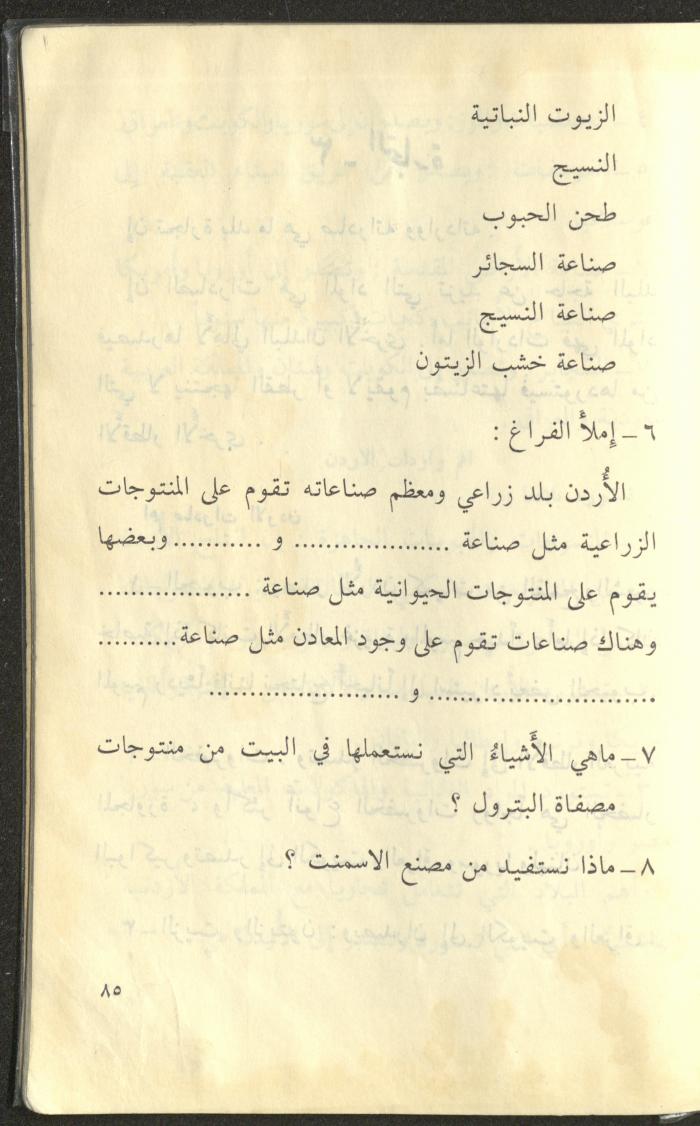 الزيوت النباتية
النسيج
طحن الحبوب
صناعة السجائر
صناعة النسيج
صناعة خشب الزيتون
٦ – إملأ الفراغ :
الأُردن بلد زراعي ومعظم صناعاته تقوم على المنتوجات
الزراعية مثل صناعة .................... و ........... وبعضها
يقوم على المنتوجات الحيوانية مثل صناعة ...................
وهناك صناعات تقوم على وجود المعادن مثل صناعة..........
............................. و ........................
٧ – ماهي الأَشياءُ التي نستعملها في البيت من منتوجات
مصفاة البترول ؟
٨ – ماذا نستفيد من مصنع الاسمنت ؟
٨٥